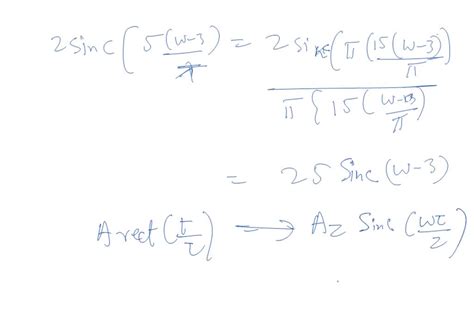 2 sinc ( 5(w-3) / π = 2 sin ( π ( 15(w-3) / π )
π { 15 ( w-3 / π )
= 25 Sinc (w-3)
A rect ( t / τ ) → Aτ Sinc ( wτ / 2 )